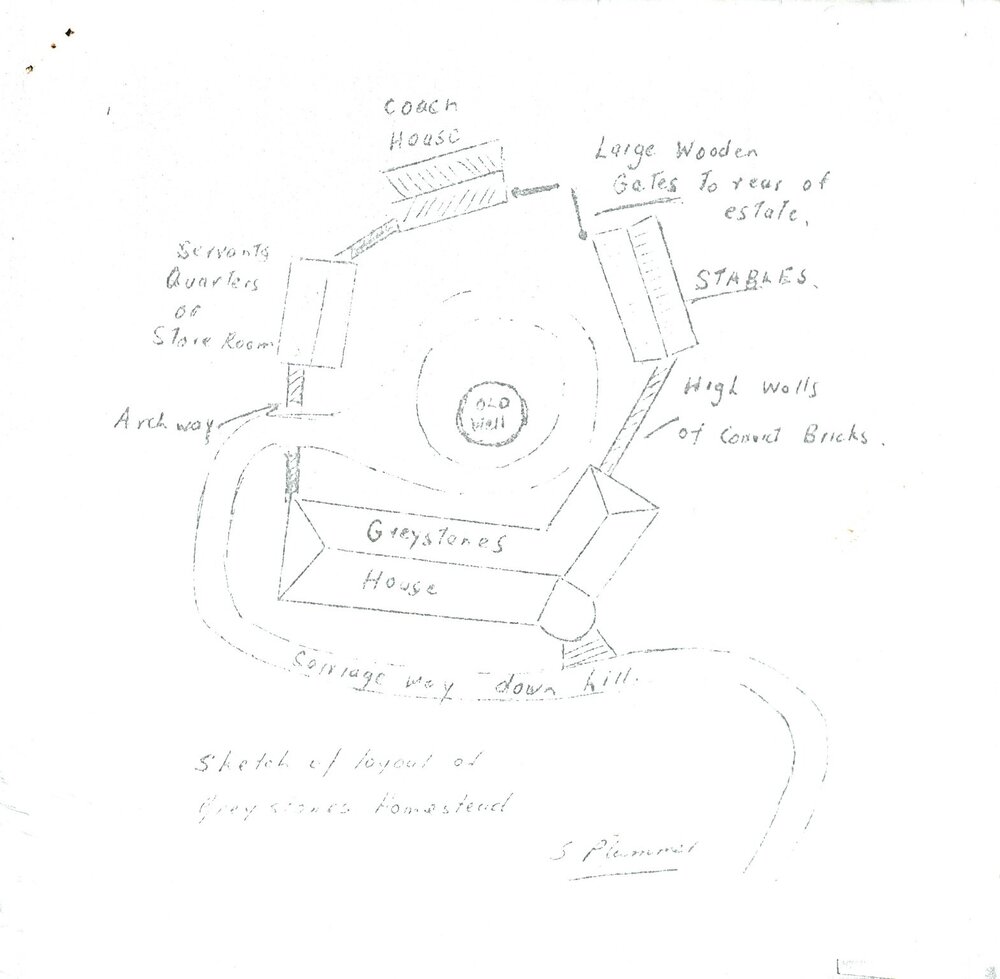 Coach
House
Large Wooden
Gates To rear of
estate.
Servants
Quarters
or
Store Room
STABLES.
Archway
OLD
Well
High Walls
of Convict Bricks.
Greystones
House
Carriage way down hill.
Sketch of layout of
Greystones Homestead
S Plummer